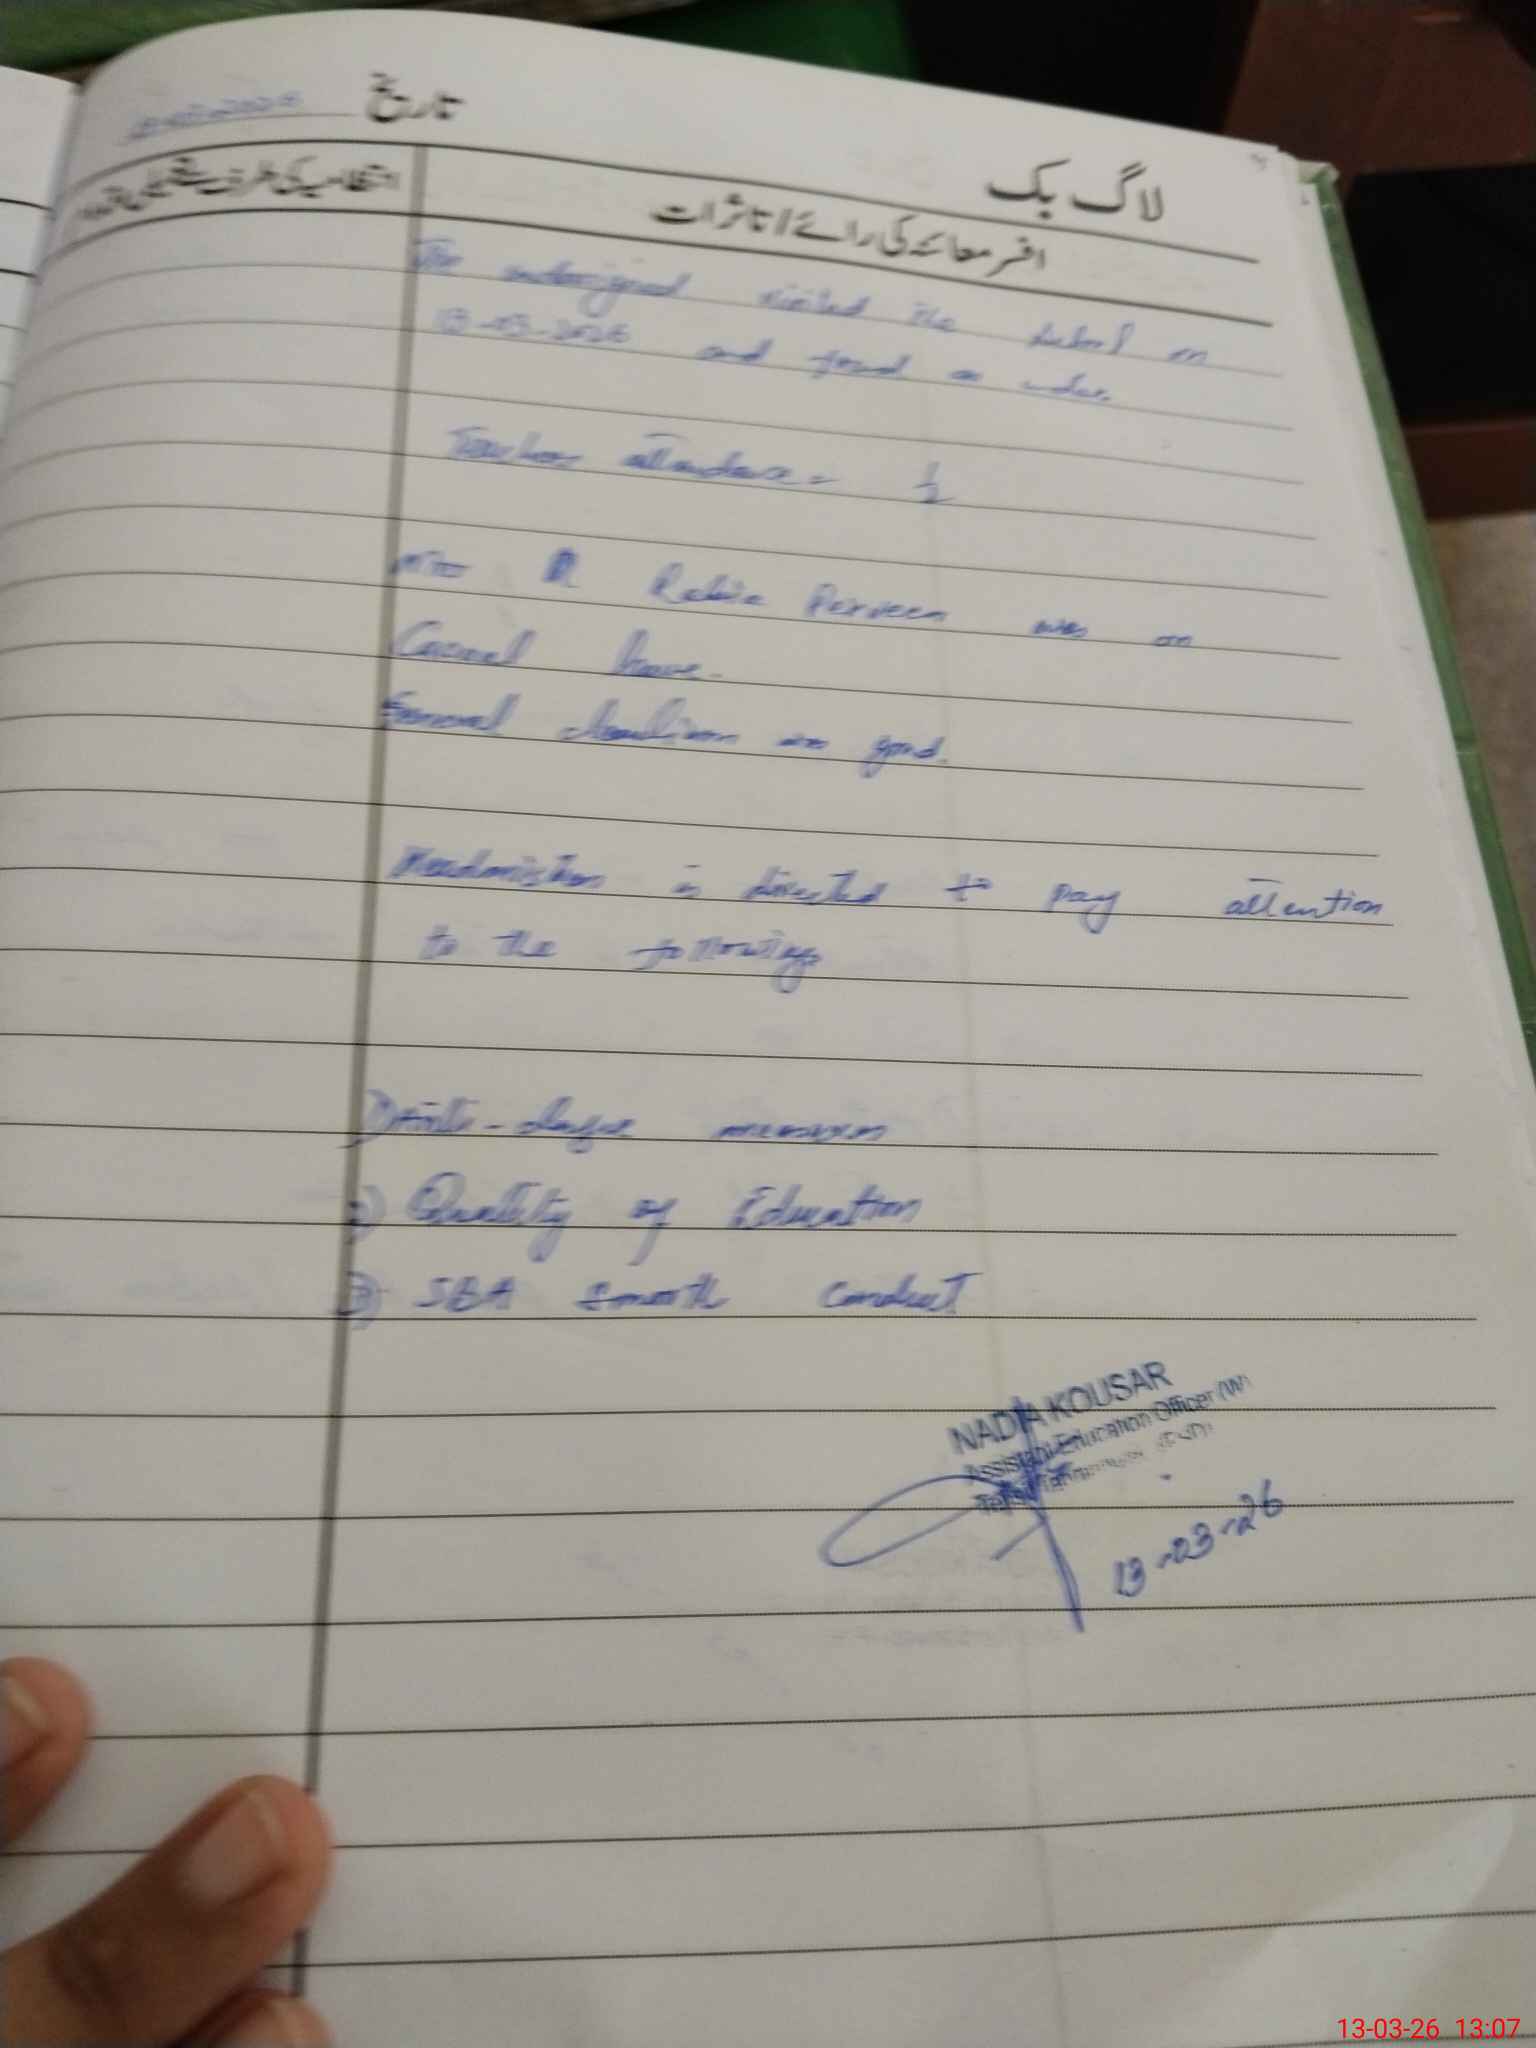 لاگ بک
تاریخ 13-03-2026
افسر معائنہ کی رائے / تاثرات
انتظامیہ کی طرف سے
The undersigned visited the school on
13-03-2026 and found as under.
Teacher attendance = 1/2
Miss Rabia Parveen was on
Casual leave.
General cleanliness was good.
Headmistress is directed to pay attention
to the following
1) Anti-dengue measures
2) Quality of Education
3) SBA smooth conduct
NADIA KOUSAR
Assistant Education Officer (W)
13-03-26
13-03-26 13:07